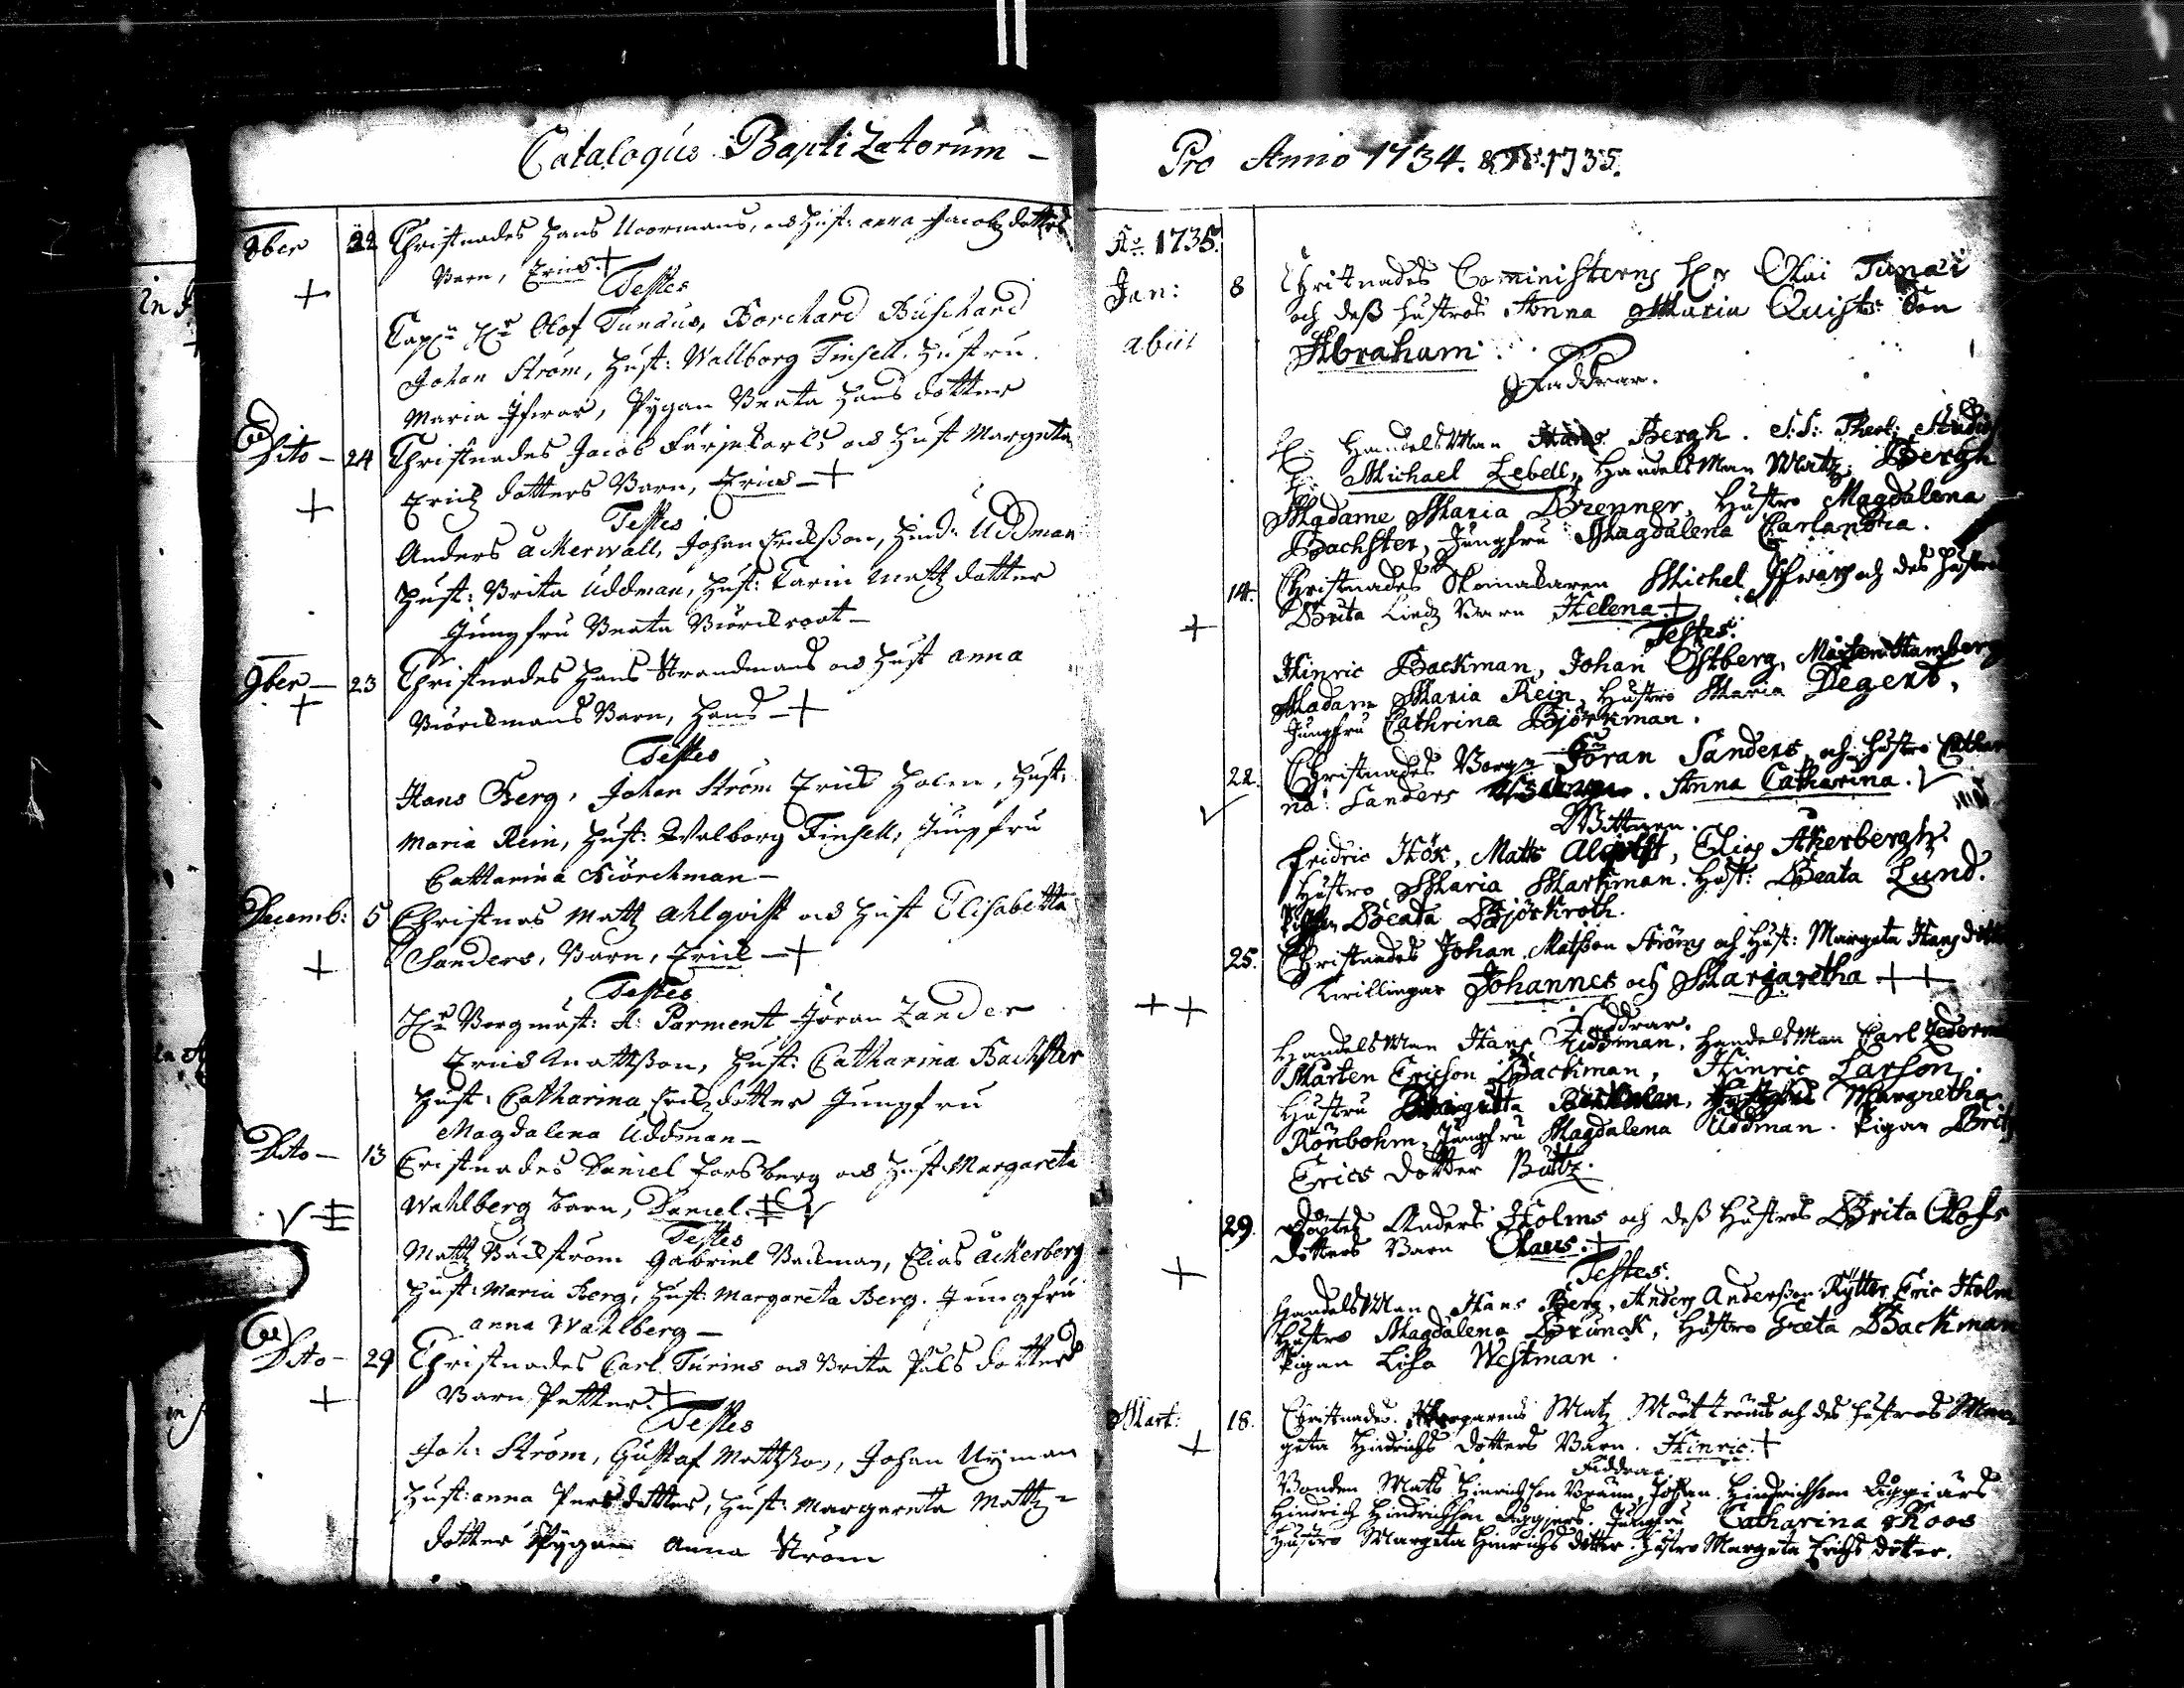 Catalogus Baptizatorum -
8ber 22 Christnades Hans Noormans, och Hust: Anna Jacobz dotters
Barn, Erics +
Testes
Hr Olof Tunæus, Borchard Buschard
Johan Ström, Hust: Wallborg Tinsell. Hustru
Maria Ifwar, Pygan Beata Hans dotter
Dito - 24 Christnades Jacob Färjekarls och Hust Margreta
Erichz dotters Barn, Erics - +
Testes
Anders Ackerwall, Johan Ericksson, Hind: Uddman
Hust: Brita Uddman, Hust: Carin Mattz dotter
Jungfru Beata Biörckroot -
9ber - 23 Christnades Hans Strandmans och Hust Anna
Biörckmans Barn, Hans - +
Testes
Hans Berg, Johan Ström Erick Holm, Hust:
Maria Rein, Hust: Walborg Tinsell, Jungfru
Cattarina Biörckman -
Decemb: 5 Christnas Mattz Ahlqvist och Hust Elisabetta
Sanders, Barn, Erick - +
Testes
Hr Borgmäst: A: Parment Jöran Zander
Erick Mattsson, Hust: Catharina Bachster
Hust: Catharina Erichz dotter Jungfru
Magdalena Uddman -
Dito - 13 Cristnades Daniel Forsberg och Hust: Margareta
Wahlberg barn, Daniel.
Testes
Mattz Bäckström Gabriel Backman, Elias Åckerberg
Hust: Maria Berg, Hust: Margareta Berg. Jungfru
Anna Wahlberg -
Dito - 29 Christnades Carl Turins och Brita Påls dotters
Barn Petter. +
Testes
Joh: Ström, Gustaf Mattsson, Johan Nyman
Hust: Anna Pers dotter, Hust: Margareta Mattz=
dotter Pygan Anna Ström
Pro Anno 1734. & 1735.
Ao 1735.
Jan: 8 Christnades Cominsterns Hr Olai Tunæi
och dess hustros Anna Maria Quists Son
abiit Abraham
Faddrar.
H. HandelsMan Hans Bergh. S.S. Theol: Studios
H: Michael Lebell, HandelsMan Matz Bergh
Madame Maria Brenner, Hustro Magdalena
Bachster, Jungfru Magdalena Carlandra.
14. Christnades Skomakaren Michel Ifwars och des hustros
Brita Lindz Barn Helena +
Testes:
Hinric Backman, Johan Östberg, Mårten Hamberg
Madam Maria Rein, Hustro Maria Degert,
Jungfru Cathrina Björkman.
22. Christnades Borg: Jöran Sanders, och hustro Catha
na: Sanders. Anna Catharina.
Wittnen.
Fridric Höök, Matts Alqvist, Elias Åkerbergh
Hustro Maria Markman. Hust: Beata Lund.
Beata Björkroth.
25. Christnades Johan Matsson Ströms och Hust: Margeta Hans dott
Twillingar Johannes och Margaretha + +
Faddrar.
HandelsMan Hans Uddman, HandelsMan Carl Cederm
Mårten Ericson Backman, Hinric Larson.
Hustru Margreta Backman, Margretha
Rönbohm, Jungfru Magdalena Uddman. Pigan Brit
Erics dotter Buttz.
29. Anders Holms och dess Hustros Brita Olofs
dotters Barn Olaus. +
Testes.
HandelsMan Hans Berg, Anders Andersson Rytter, Eric Holm
Hustro Magdalena Brunck, Hustro Greta Backman
Pigan Lisa Westman.
Mart: 18. Christnades Matz Mört ströms och des hustros Mar
geta Hindrichs dotters Barn. Hinric. +
Faddrar
Bonden Matts Hinrichson Braun, Johan Hindrichson
Hindrich Hindrichson. Jungfru Catharina Roos
Hustro Margeta Hinrichs dotter. Hustro Margeta Erichs dotter.